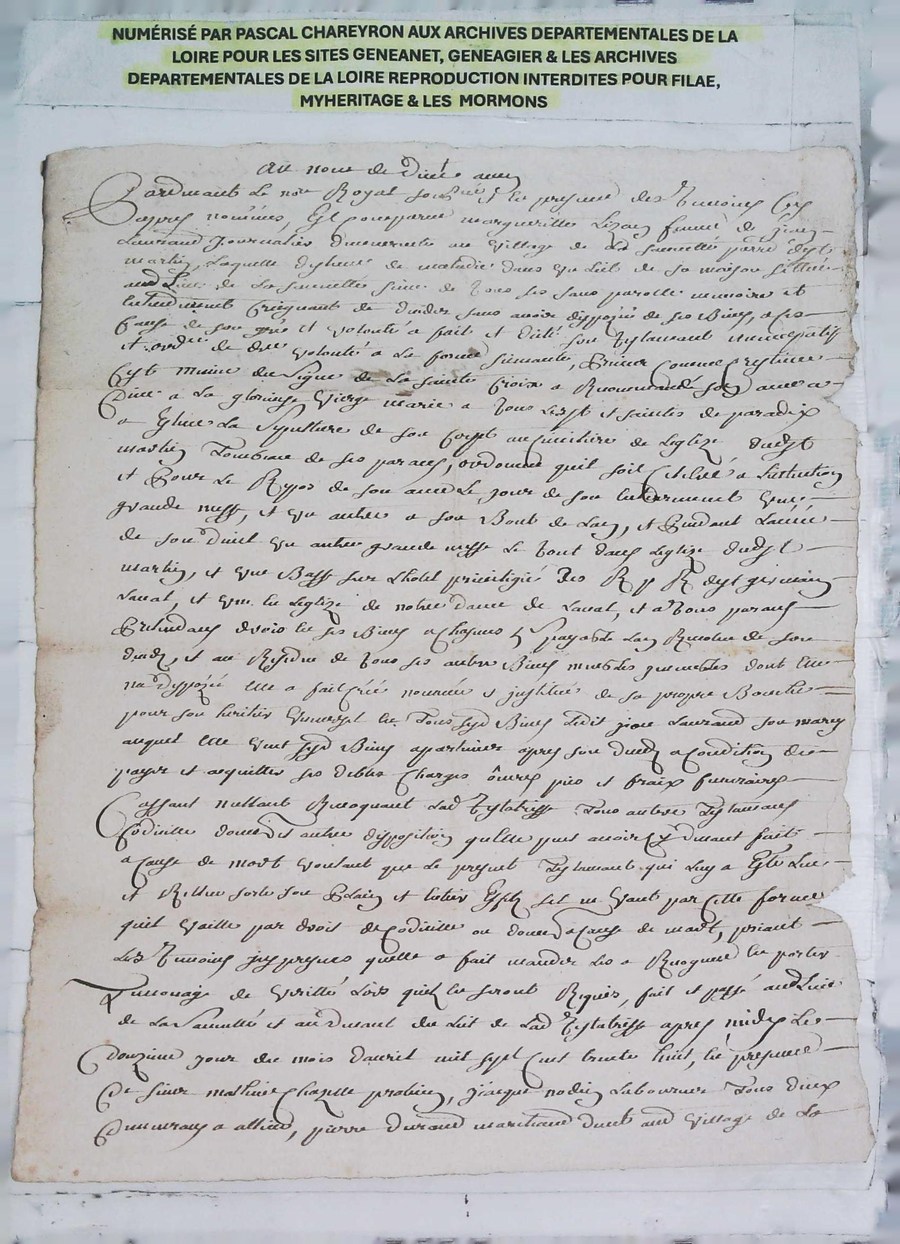 NUMÉRISÉ PAR PASCAL CHAREYRON AUX ARCHIVES DEPARTEMENTALES DE LA
LOIRE POUR LES SITES GENEANET, GENEAGIER & LES ARCHIVES
DEPARTEMENTALES DE LA LOIRE REPRODUCTION INTERDITES POUR FILAE,
MYHERITAGE & LES MORMONS
Au nom de Dieu amen
Pardevant Le nore Royal et en presence des Temoins Cy
apres nommées, Est comparue margueritte femme de jean
Laurand journalier demeurante au village de La
martin, Laquelle de maladie dans un Lit de sa maison
aud Lieu de La de tous ses sans parolle memoire et
Entendement de deceder sans avoir disposé de ses Biens, a ces
Cause de son gré et volonté a fait et son Testament
et ordre de dre volonté a La forme suivante, comme crestienne
munie du signe de La sainte Croix a Recommandé son ame a
Dieu a La glorieuse vierge marie a tous Les sts et saintes de paradix
a Eslue La sepulture de son Corps au cimitiere de Leglize dudst
martin Tombeau de ses parans, ordonne quil soit Celebré a Lintention
et Pour Le Repos de son ame Le jour de son Enterrement une
grande messe, et un autre a son Bout de Lan, et Pendant Lannée
de son deuil un autre grande messe Le tout dans Leglize dudst
martin, et une Basse sur Lhotel privilegié des R P R dest germain
Laval, et une en Leglize de notre dame de Laval, et a tous parans
Pretendans droit en ses Biens a Chacuns 5 s payable Lan Revolue de son
deceds, et au Residue de tous ses autres Biens meubles immeubles dont Elle
na disposé Elle a fait Créé nommée et justitué de sa propre Bouche
pour son heritier universel en Tous sesd Biens Ledit jean Laurand son mary
auquel Elle veut sesd Biens apartiener apres son deceds a Condition de
payer et acquitter ses debtes Charges œuvres pies et fraix funeraires
Cassant nullant Revoquant Lad Testatrisse Tous autres Testamans
Codicille donnes et autres dispositions quelle peut avoir Cy devant fait
a Cause de mort voulant que Le present Testament qui Luy a Esté Lue
et Relue sorte son Plain et Entier Effet sil ne vaut par Cette forme
quil vaille par droit de Codicille ou donnes a Cause de mort, priant
Les Temoins quelle a fait mander Les a Recognue En porter
Temoniage de verité Lors quils En seront Requis, fait et passé aud Lieu
de La et audevant du Lit de Lad Testatrisse apres midy Le
douzieme jour du mois davril mil sept Cent trente huit, En presence
de sieur mathieu Chapelle praticien, jacque nodin Laboureur Tous deux
Demeurans a allieu, pierre durand marchand demt aud village de La